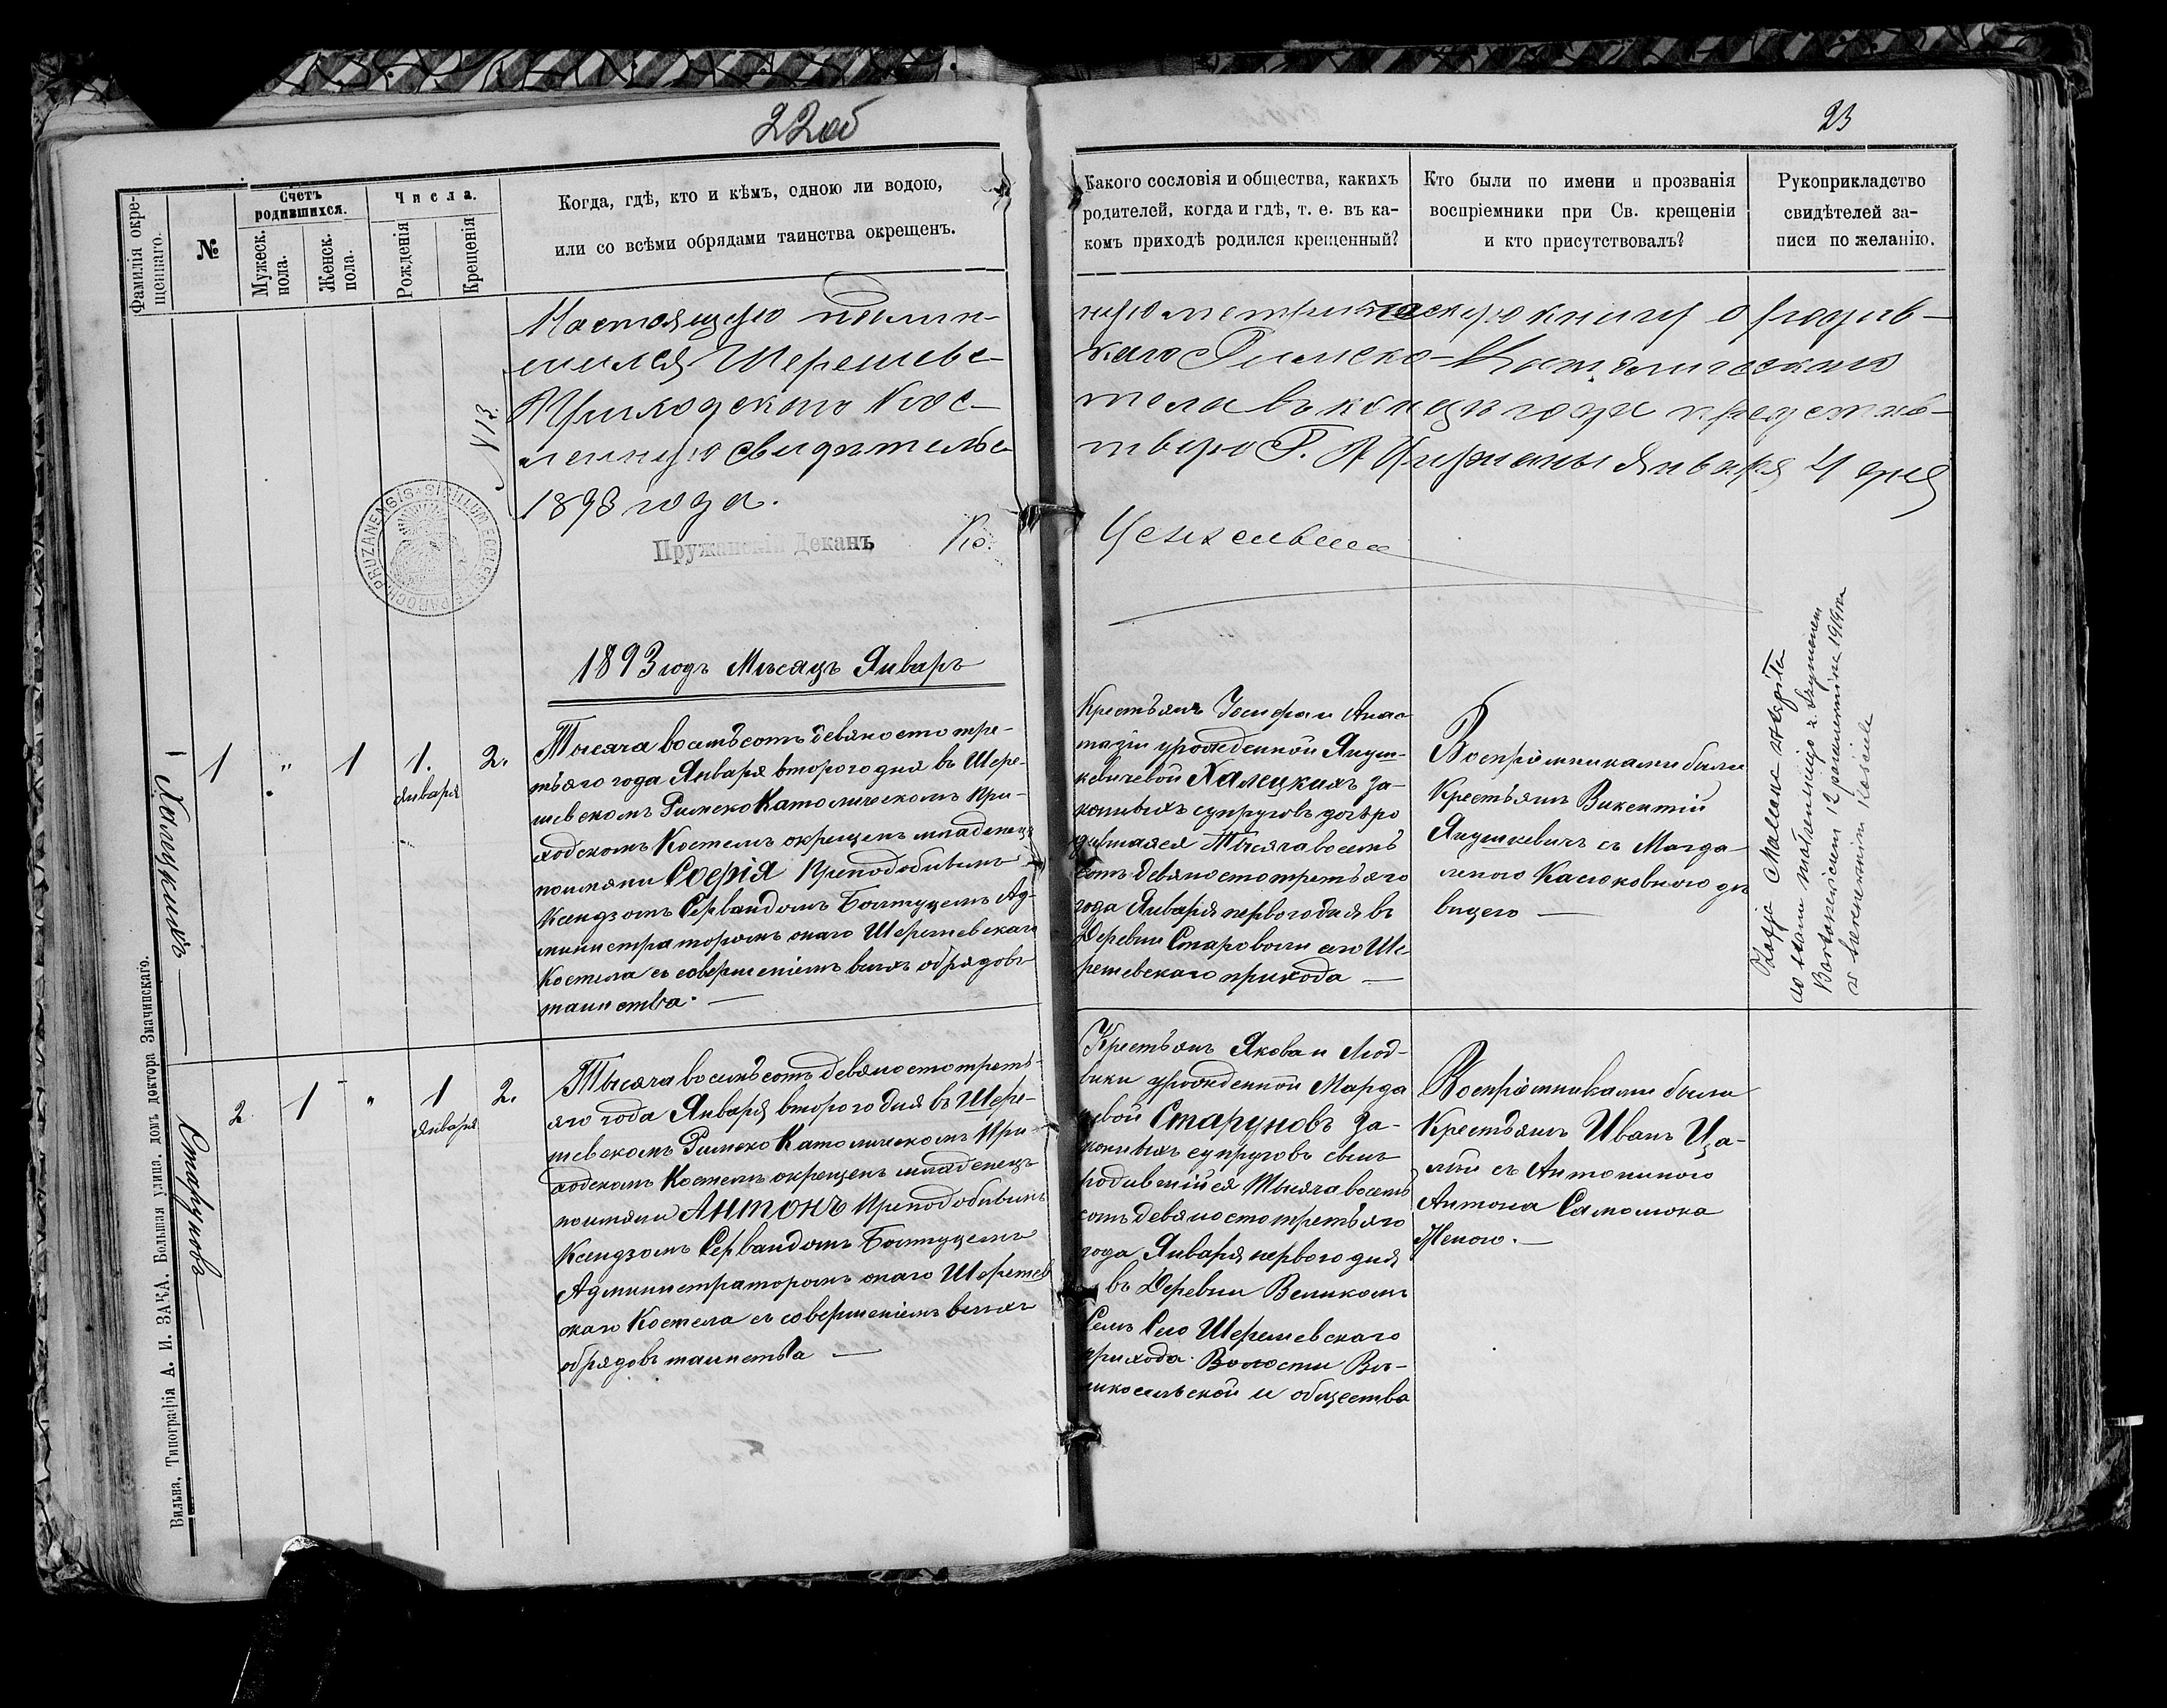 22об
23
Фамилія окре-
щеннаго.
№
Счетъ
родившихся.
Мужеск.
пола.
Женск.
пола.
Числа.
Рожденія
Крещенія
Когда, гдѣ, кто и кѣмъ, одною ли водою,
или со всѣми обрядами таинства окрещенъ.
Какого сословія и общества, какихъ
родителей, когда и гдѣ, т. е. въ ка-
комъ приходѣ родился крещенный?
Кто были по имени и прозванія
воспріемники при Св. крещеніи
и кто присутствовалъ?
Рукоприкладство
свидѣтелей за-
писи по желанію.
Настоящую подлин-
ную метрическую книгу о родив-
шихся Шерешевс-
каго Римско-Католическаго
Приходскаго Кос-
тела въ концѣ года представ-
ленную свидѣтельс-
твую Г. Пружаны Января 4 дня
1893 года.
№ 13.
SIGILLUM ECCLESIÆ PAROCH. PRUZANENSIS
Пружанскій Деканъ
Кс.
1893 годъ Мѣсяцъ Январь
Халецкихъ
1 " 1 1. 2.
января
Тысяча восемьсотъ девяносто тре-
тьяго года Января второго дня въ Шере-
шевскомъ Римско Католическомъ При-
ходскомъ Костелѣ окрещенъ младенецъ
по имени Софія Преподобнымъ
Ксендзомъ Сервандомъ Болтуцемъ Ад-
министраторомъ онаго Шерешевскаго
Костела съ совершеніемъ всѣхъ обрядовъ
таинства. —
Крестьянъ Іосифа и Анас-
тазіи урожденной Якуш-
кевичевой Халецкихъ за-
конныхъ супруговъ дочь ро
дившаяся Тысяча восемь
сотъ девяносто третьяго
года Января перваго дня въ
Деревни Староволи сего Ше-
решевскаго прихода —
Воспріемниками были
Крестьянъ Викентій
Якушкевичъ съ Магда-
леною Касюковною дѣ
вицею —
Zofja Chalecka wstąpiła
do stanu małżeńskiego z Szymonem
Bartoszewiczem 12 października 1919 roku
w Kościele
Старуновъ
2 1 " 1 2.
января
Тысяча восемьсотъ девяносто треть-
яго года Января второго дня въ Шере-
шевскомъ Римско Католическомъ При-
ходскомъ Костелѣ окрещенъ младенецъ
по имени Антонъ Преподобнымъ
Ксендзомъ Сервандомъ Болтуцемъ
Администраторомъ онаго Шерешев
скаго Костела съ совершеніемъ всѣхъ
обрядовъ таинства —
Крестьянъ Якова и Люд-
вики урожденной Марда
цевой Старуновъ за-
конныхъ супруговъ сынъ
родившійся Тысяча восемь
сотъ девяносто третьяго
года Января перваго дня
въ Деревни Великомъ
Селѣ Сего Шерешевскаго
прихода. Волости Ве-
ликосельской и общества
Воспріемниками были
Крестьянъ Иванъ Ца-
лый съ Антониною
Антона Самолюка
Женою. —
Вильна, Типографія А. И. ЗАКА. Большая улица, домъ доктора Значинскаго.